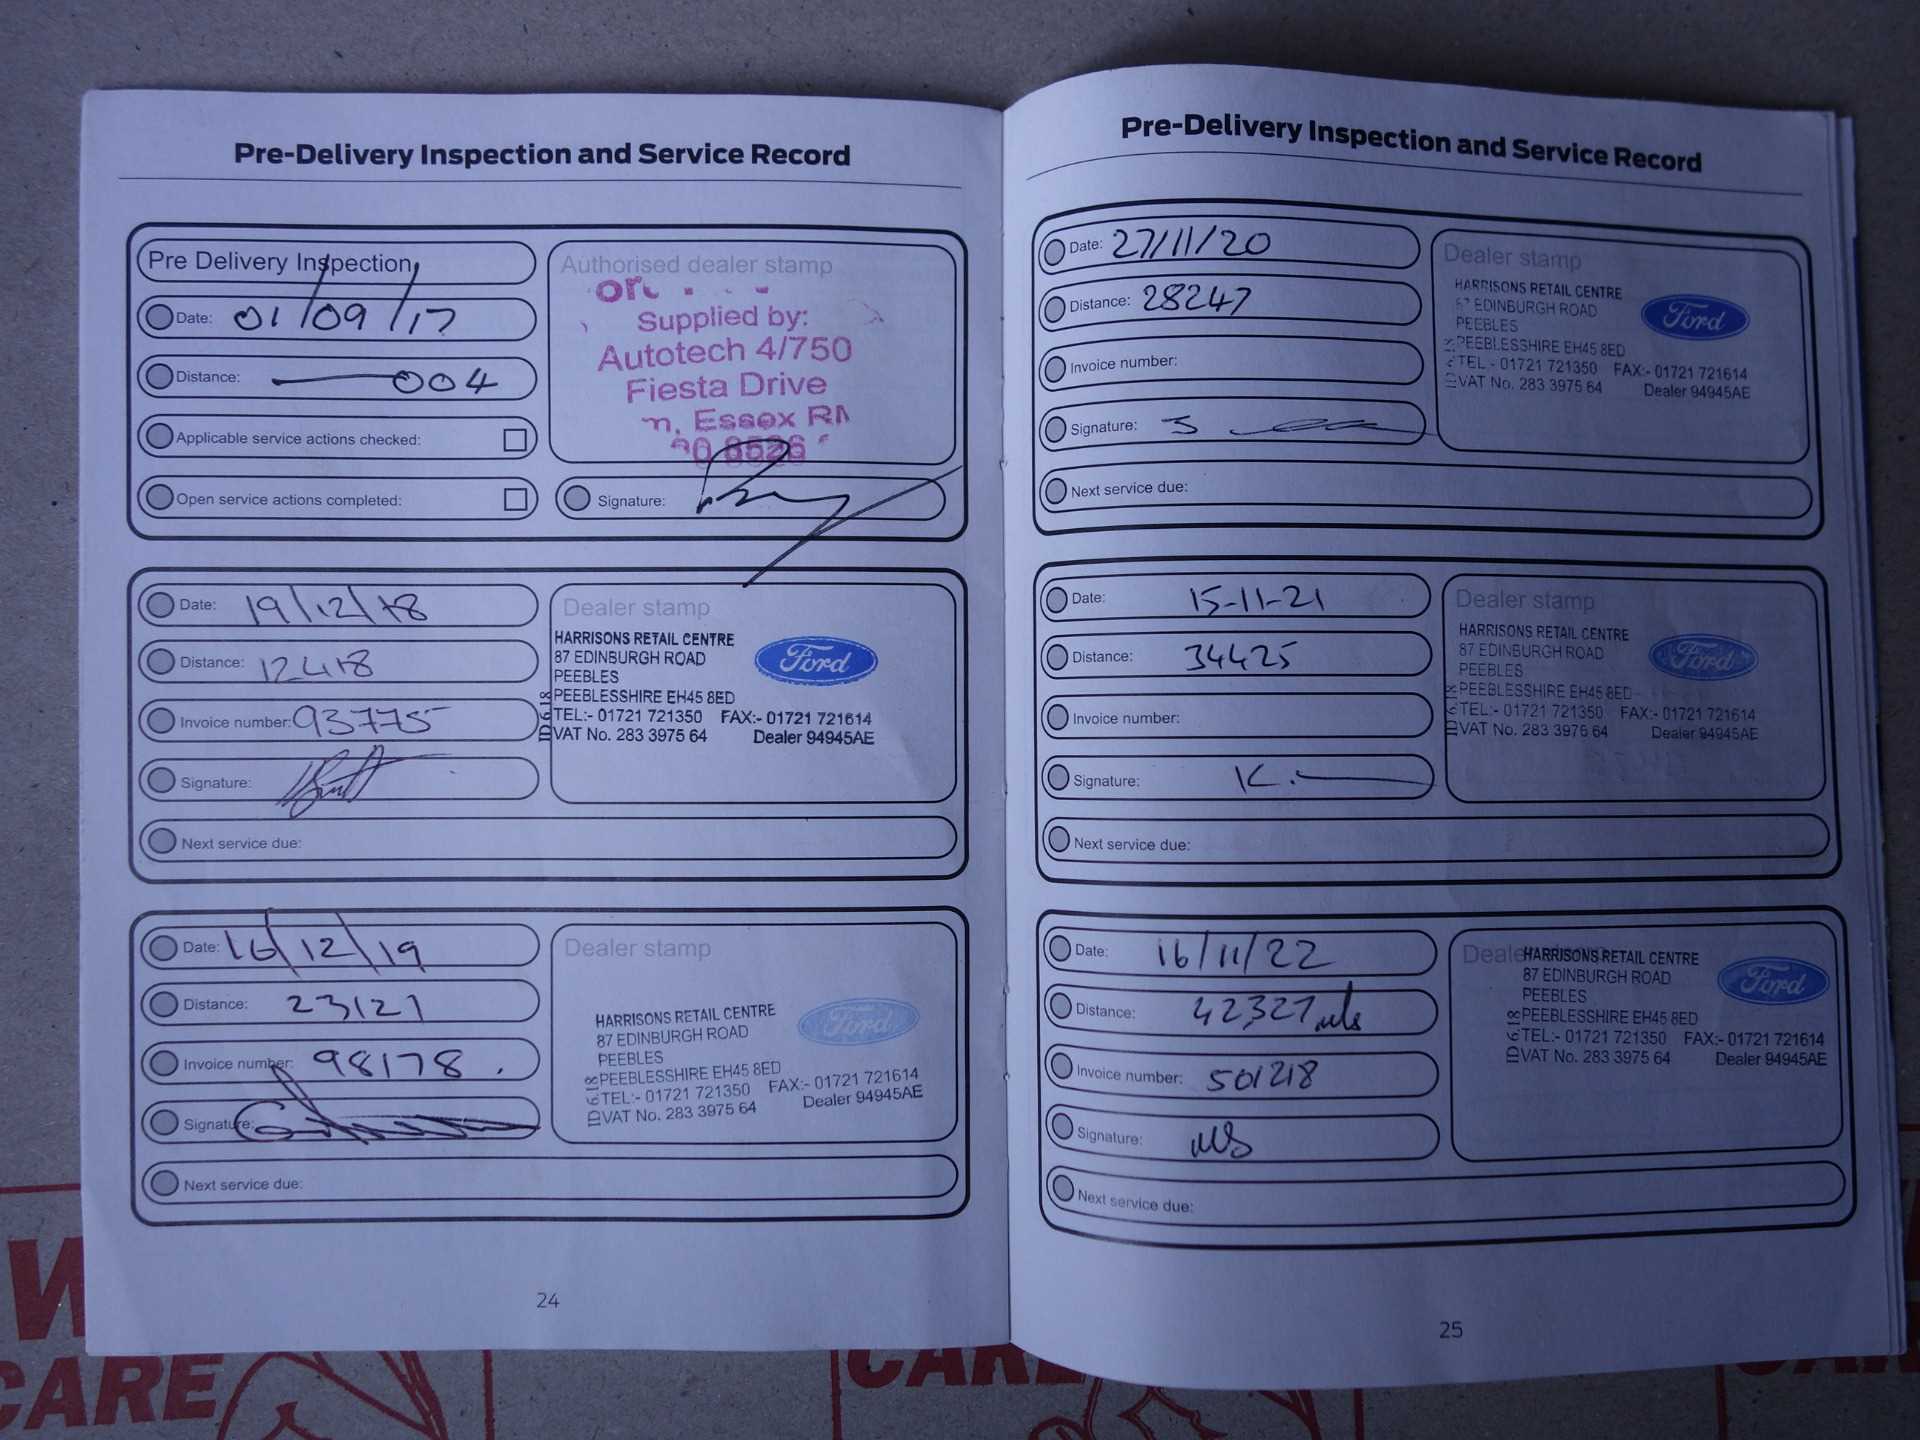 Pre-Delivery Inspection and Service Record
Pre Delivery Inspection
Date: 01/09/17
Distance: 004
Applicable service actions checked:
Open service actions completed:
Authorised dealer stamp
Supplied by:
Autotech 4/750
Fiesta Drive
Essex
Signature:
Date: 19/12/18
Distance: 12418
Invoice number: 93775
Signature:
Next service due:
Dealer stamp
HARRISONS RETAIL CENTRE
87 EDINBURGH ROAD
PEEBLES
PEEBLESSHIRE EH45 8ED
TEL:- 01721 721350 FAX:- 01721 721614
VAT No. 283 3975 64 Dealer 94945AE
ID 6.18
Ford
Date: 16/12/19
Distance: 23121
Invoice number: 98178.
Signature:
Next service due:
Dealer stamp
HARRISONS RETAIL CENTRE
87 EDINBURGH ROAD
PEEBLES
PEEBLESSHIRE EH45 8ED
TEL:- 01721 721350 FAX:- 01721 721614
VAT No. 283 3975 64 Dealer 94945AE
ID 6.18
Ford
24
Pre-Delivery Inspection and Service Record
Date: 27/11/20
Distance: 28247
Invoice number:
Signature:
Next service due:
Dealer stamp
HARRISONS RETAIL CENTRE
87 EDINBURGH ROAD
PEEBLES
PEEBLESSHIRE EH45 8ED
TEL:- 01721 721350 FAX:- 01721 721614
VAT No. 283 3975 64 Dealer 94945AE
Ford
Date: 15-11-21
Distance: 34425
Invoice number:
Signature: K.
Next service due:
Dealer stamp
HARRISONS RETAIL CENTRE
87 EDINBURGH ROAD
PEEBLES
PEEBLESSHIRE EH45 8ED
TEL:- 01721 721350 FAX:- 01721 721614
VAT No. 283 3975 64 Dealer 94945AE
Ford
Date: 16/11/22
Distance: 42,327 mls
Invoice number: 501218
Signature:
Next service due:
HARRISONS RETAIL CENTRE
87 EDINBURGH ROAD
PEEBLES
PEEBLESSHIRE EH45 8ED
TEL:- 01721 721350 FAX:- 01721 721614
VAT No. 283 3975 64 Dealer 94945AE
ID 6.18
Ford
25
CARE
CARE